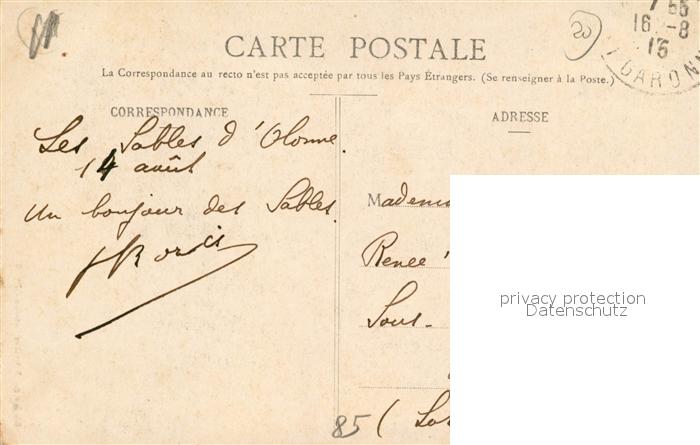 7 55
16 -8
13
GARONN
20
CARTE POSTALE
La Correspondance au recto n'est pas acceptée par tous les Pays Étrangers. (Se renseigner à la Poste.)
CORRESPONDANCE
Les Sables d'Olonne.
14 août
Un bonjour des Sables.
ADRESSE
Madem
Renée
Sous-
(Lot
85
privacy protection
Datenschutz